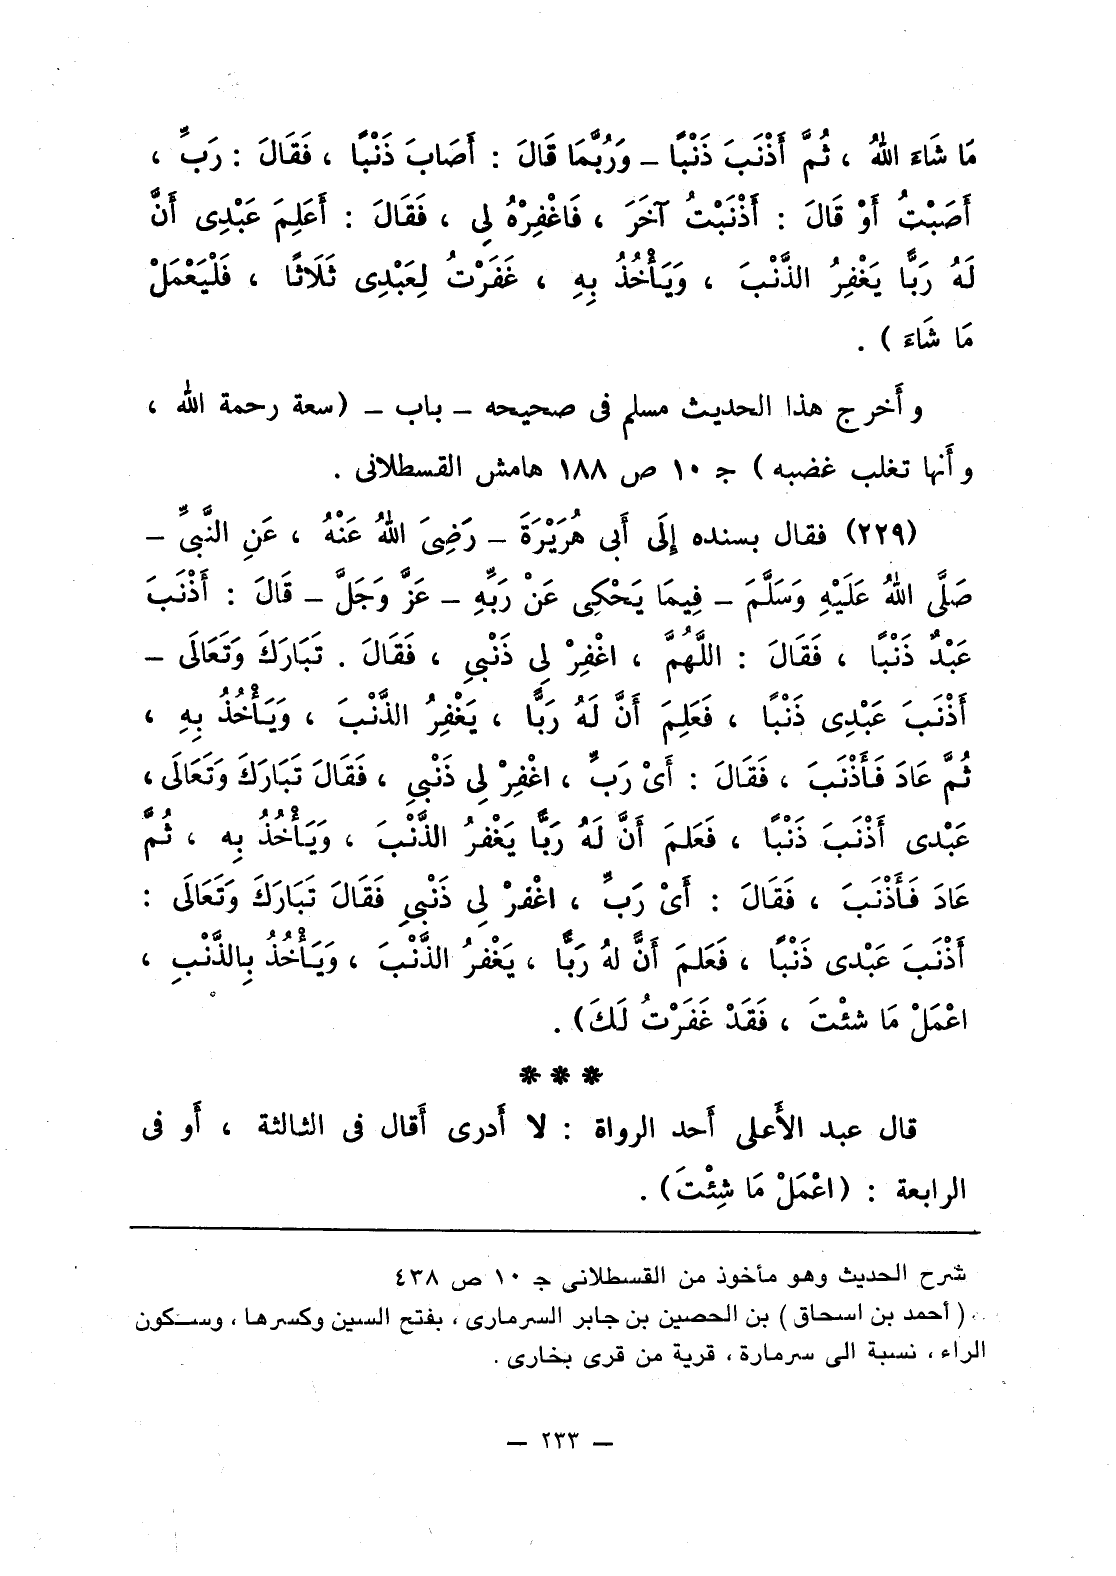 مَا شَاءَ اللهُ ، ثُمَّ أَذْنَبَ ذَنْبًا – وَرُبَّمَا قَالَ : أَصَابَ ذَنْبًا ، فَقَالَ : رَبِّ ،
أَصَبْتُ أَوْ قَالَ : أَذْنَبْتُ آخَرَ ، فَاغْفِرْهُ لِى ، فَقَالَ : أَعَلِمَ عَبْدِى أَنَّ
لَهُ رَبًّا يَغْفِرُ الذَّنْبَ ، وَيَأْخُذُ بِهِ ، غَفَرْتُ لِعَبْدِى ثَلَاثًا ، فَلْيَعْمَلْ
مَا شَاءَ ) .
وأَخرج هذا الحديث مسلم فى صحيحه – باب – (سعة رحمة الله ،
وأَنها تغلب غضبه) جـ ١٠ ص ١٨٨ هامش القسطلانى .
(٢٢٩) فقال بسنده إِلَى أَبِى هُرَيْرَةَ – رَضِىَ اللهُ عَنْهُ ، عَنِ النَّبِىِّ –
صَلَّى اللهُ عَلَيْهِ وَسَلَّمَ – فِيمَا يَحْكِى عَنْ رَبِّهِ – عَزَّ وَجَلَّ – قَالَ : أَذْنَبَ
عَبْدٌ ذَنْبًا ، فَقَالَ : اللَّهُمَّ ، اغْفِرْ لِى ذَنْبِي ، فَقَالَ . تَبَارَكَ وَتَعَالَى –
أَذْنَبَ عَبْدِى ذَنْبًا ، فَعَلِمَ أَنَّ لَهُ رَبًّا ، يَغْفِرُ الذَّنْبَ ، وَيَأْخُذُ بِهِ ،
ثُمَّ عَادَ فَأَذْنَبَ ، فَقَالَ : أَىْ رَبِّ ، اغْفِرْ لِى ذَنْبِي ، فَقَالَ تَبَارَكَ وَتَعَالَى ،
عَبْدِى أَذْنَبَ ذَنْبًا ، فَعَلمَ أَنَّ لَهُ رَبًّا يَغْفرُ الذَّنْبَ ، وَيَأْخُذُ بِه ، ثُمَّ
عَادَ فَأَذْنَبَ ، فَقَالَ : أَىْ رَبِّ ، اغْفرْ لِى ذَنْبِي فَقَالَ تَبَارَكَ وَتَعَالَى :
أَذْنَبَ عَبْدِى ذَنْبًا ، فَعَلمَ أَنَّ لهُ رَبًّا ، يَغْفرُ الذَّنْبَ ، وَيَأْخُذُ بِالذَّنْبِ ،
اعْمَلْ مَا شئْتَ ، فَقَدْ غَفَرْتُ لَكَ) .
* * *
قال عبد الأَعلى أَحد الرواة : لا أَدرى أَقال فى الثالثة ، أَو فى
الرابعة : (اعْمَلْ مَا شِئْتَ) .
شرح الحديث وهو مأخوذ من القسطلانى جـ ١٠ ص ٤٣٨
( أحمد بن اسحاق ) بن الحصين بن جابر السرمارى ، بفتح السين وكسرها ، وسكون
الراء ، نسبة الى سرمارة ، قرية من قرى بخارى .
– ٢٣٣ –